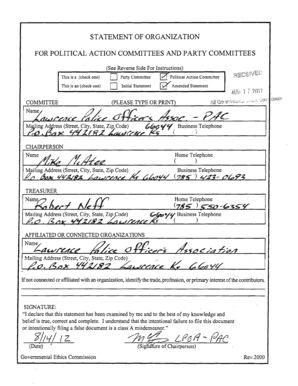 STATEMENT OF ORGANIZATION
FOR POLITICAL ACTION COMMITTEES AND PARTY COMMITTEES
(See Reverse Side For Instructions)
This is a (check one) Party Committee Political Action Committee
This is an (check one) Initial Statement Amended Statement
RECEIVED
AUG 17 2012
COMMITTEE (PLEASE TYPE OR PRINT)
Name
Lawrence Police Officers Assoc. - PAC
Mailing Address (Street, City, State, Zip Code) 66044 Business Telephone
P.O. Box 442182 Lawrence Ks ( )
CHAIRPERSON
Name Home Telephone
Mike McAtee ( )
Mailing Address (Street, City, State, Zip Code) Business Telephone
P.o. Box 442182 Lawrence Ks 66044 (785) 423-0693
TREASURER
Name Home Telephone
Robert Neff (785) 550-6354
Mailing Address (Street, City, State, Zip Code) 66044 Business Telephone
P.O. Box 442182 Lawrence Ks ( )
AFFILIATED OR CONNECTED ORGANIZATIONS
Name
Lawrence Police Officers Association
Mailing Address (Street, City, State, Zip Code)
P.O. Box 442182 Lawrence Ks 66044
If not connected or affiliated with an organization, identify the trade, profession, or primary interest of the contributors.
SIGNATURE:
"I declare that this statement has been examined by me and to the best of my knowledge and
belief is true, correct and complete. I understand that the intentional failure to file this document
or intentionally filing a false document is a Class A misdemeanor."
8/14/12 LPOA - PAC
(Date) (Signature of Chairperson)
Governmental Ethics Commission Rev.2000